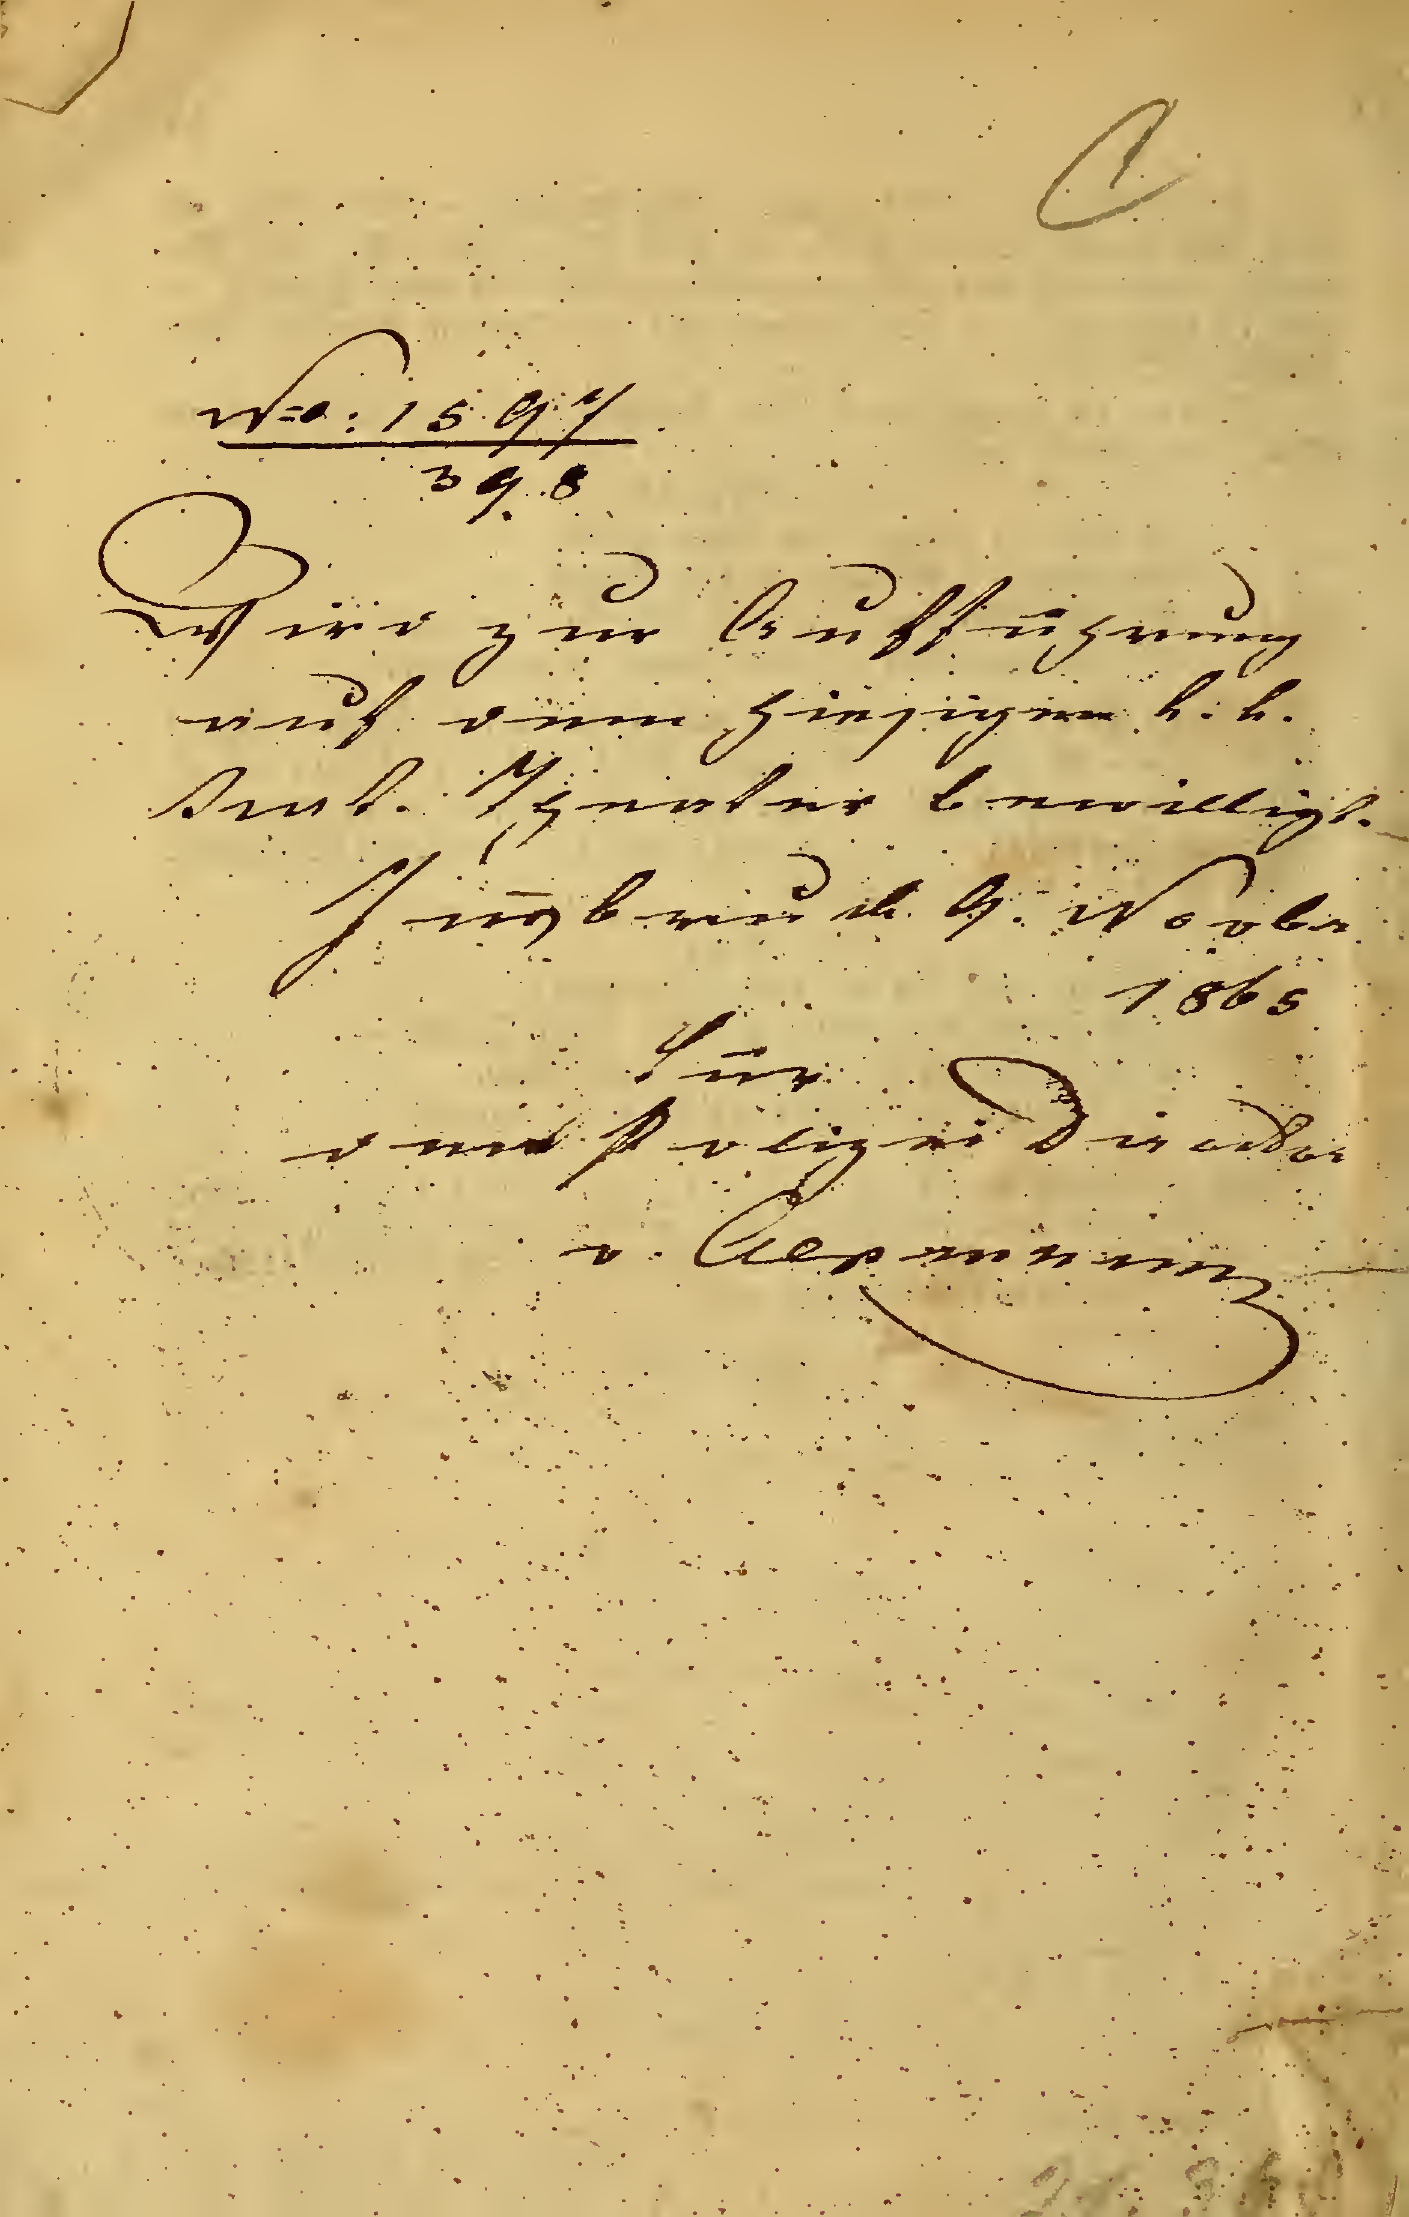 No: 1597
398
Wird zur Aufführung
auf dem hiesigen k. k.
Nat. Theater bewilligt.
Innsbruck 9. Novbr
1865
Für
den Polizei Direktor
v.